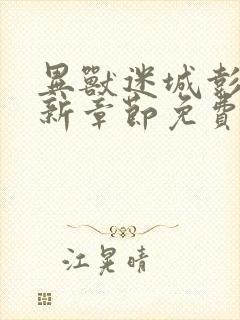 異獸迷城彭
新章節免費
江晃晴